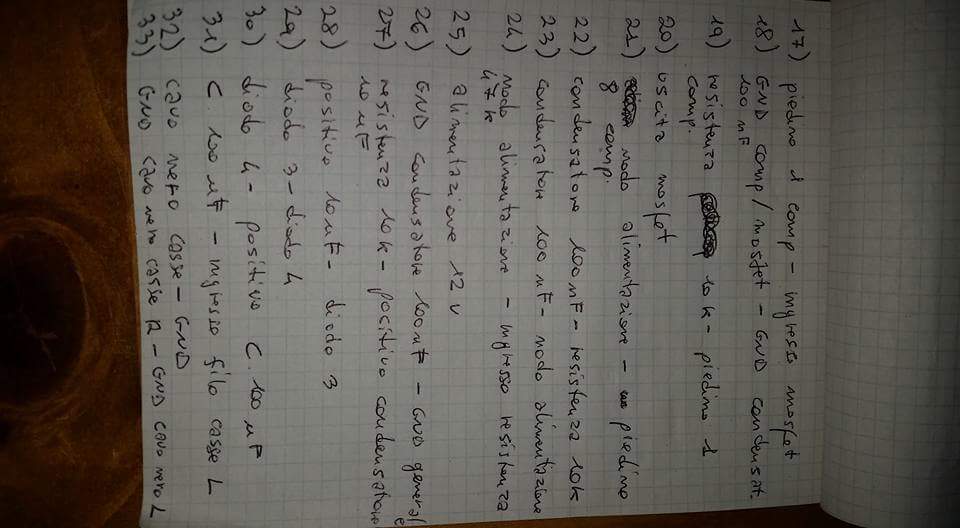 17) piedino 1 comp - ingresso mosfet
18) GND comp/mosfet - GND condensat.
100 nF
19) resistenza 10k - piedino 1
comp.
20) uscita mosfet
21) nodo alimentazione - piedino
8 comp.
22) condensatore 100 nF - resistenza 10k
23) condensatore 100 nF - nodo alimentazione
24) nodo alimentazione - ingresso resistenza
47k
25) alimentazione 12 V
26) GND condensatore 100 nF - GND generale
27) resistenza 10k - positivo condensatore
10 µF
28) positivo 10 µF - diodo 3
29) diodo 3 - diodo 4
30) diodo 4 - positivo C. 100 µF
31) C. 100 µF - ingresso filo casse L
32) cavo nero casse - GND
33) GND cavo nero casse R - GND cavo nero L